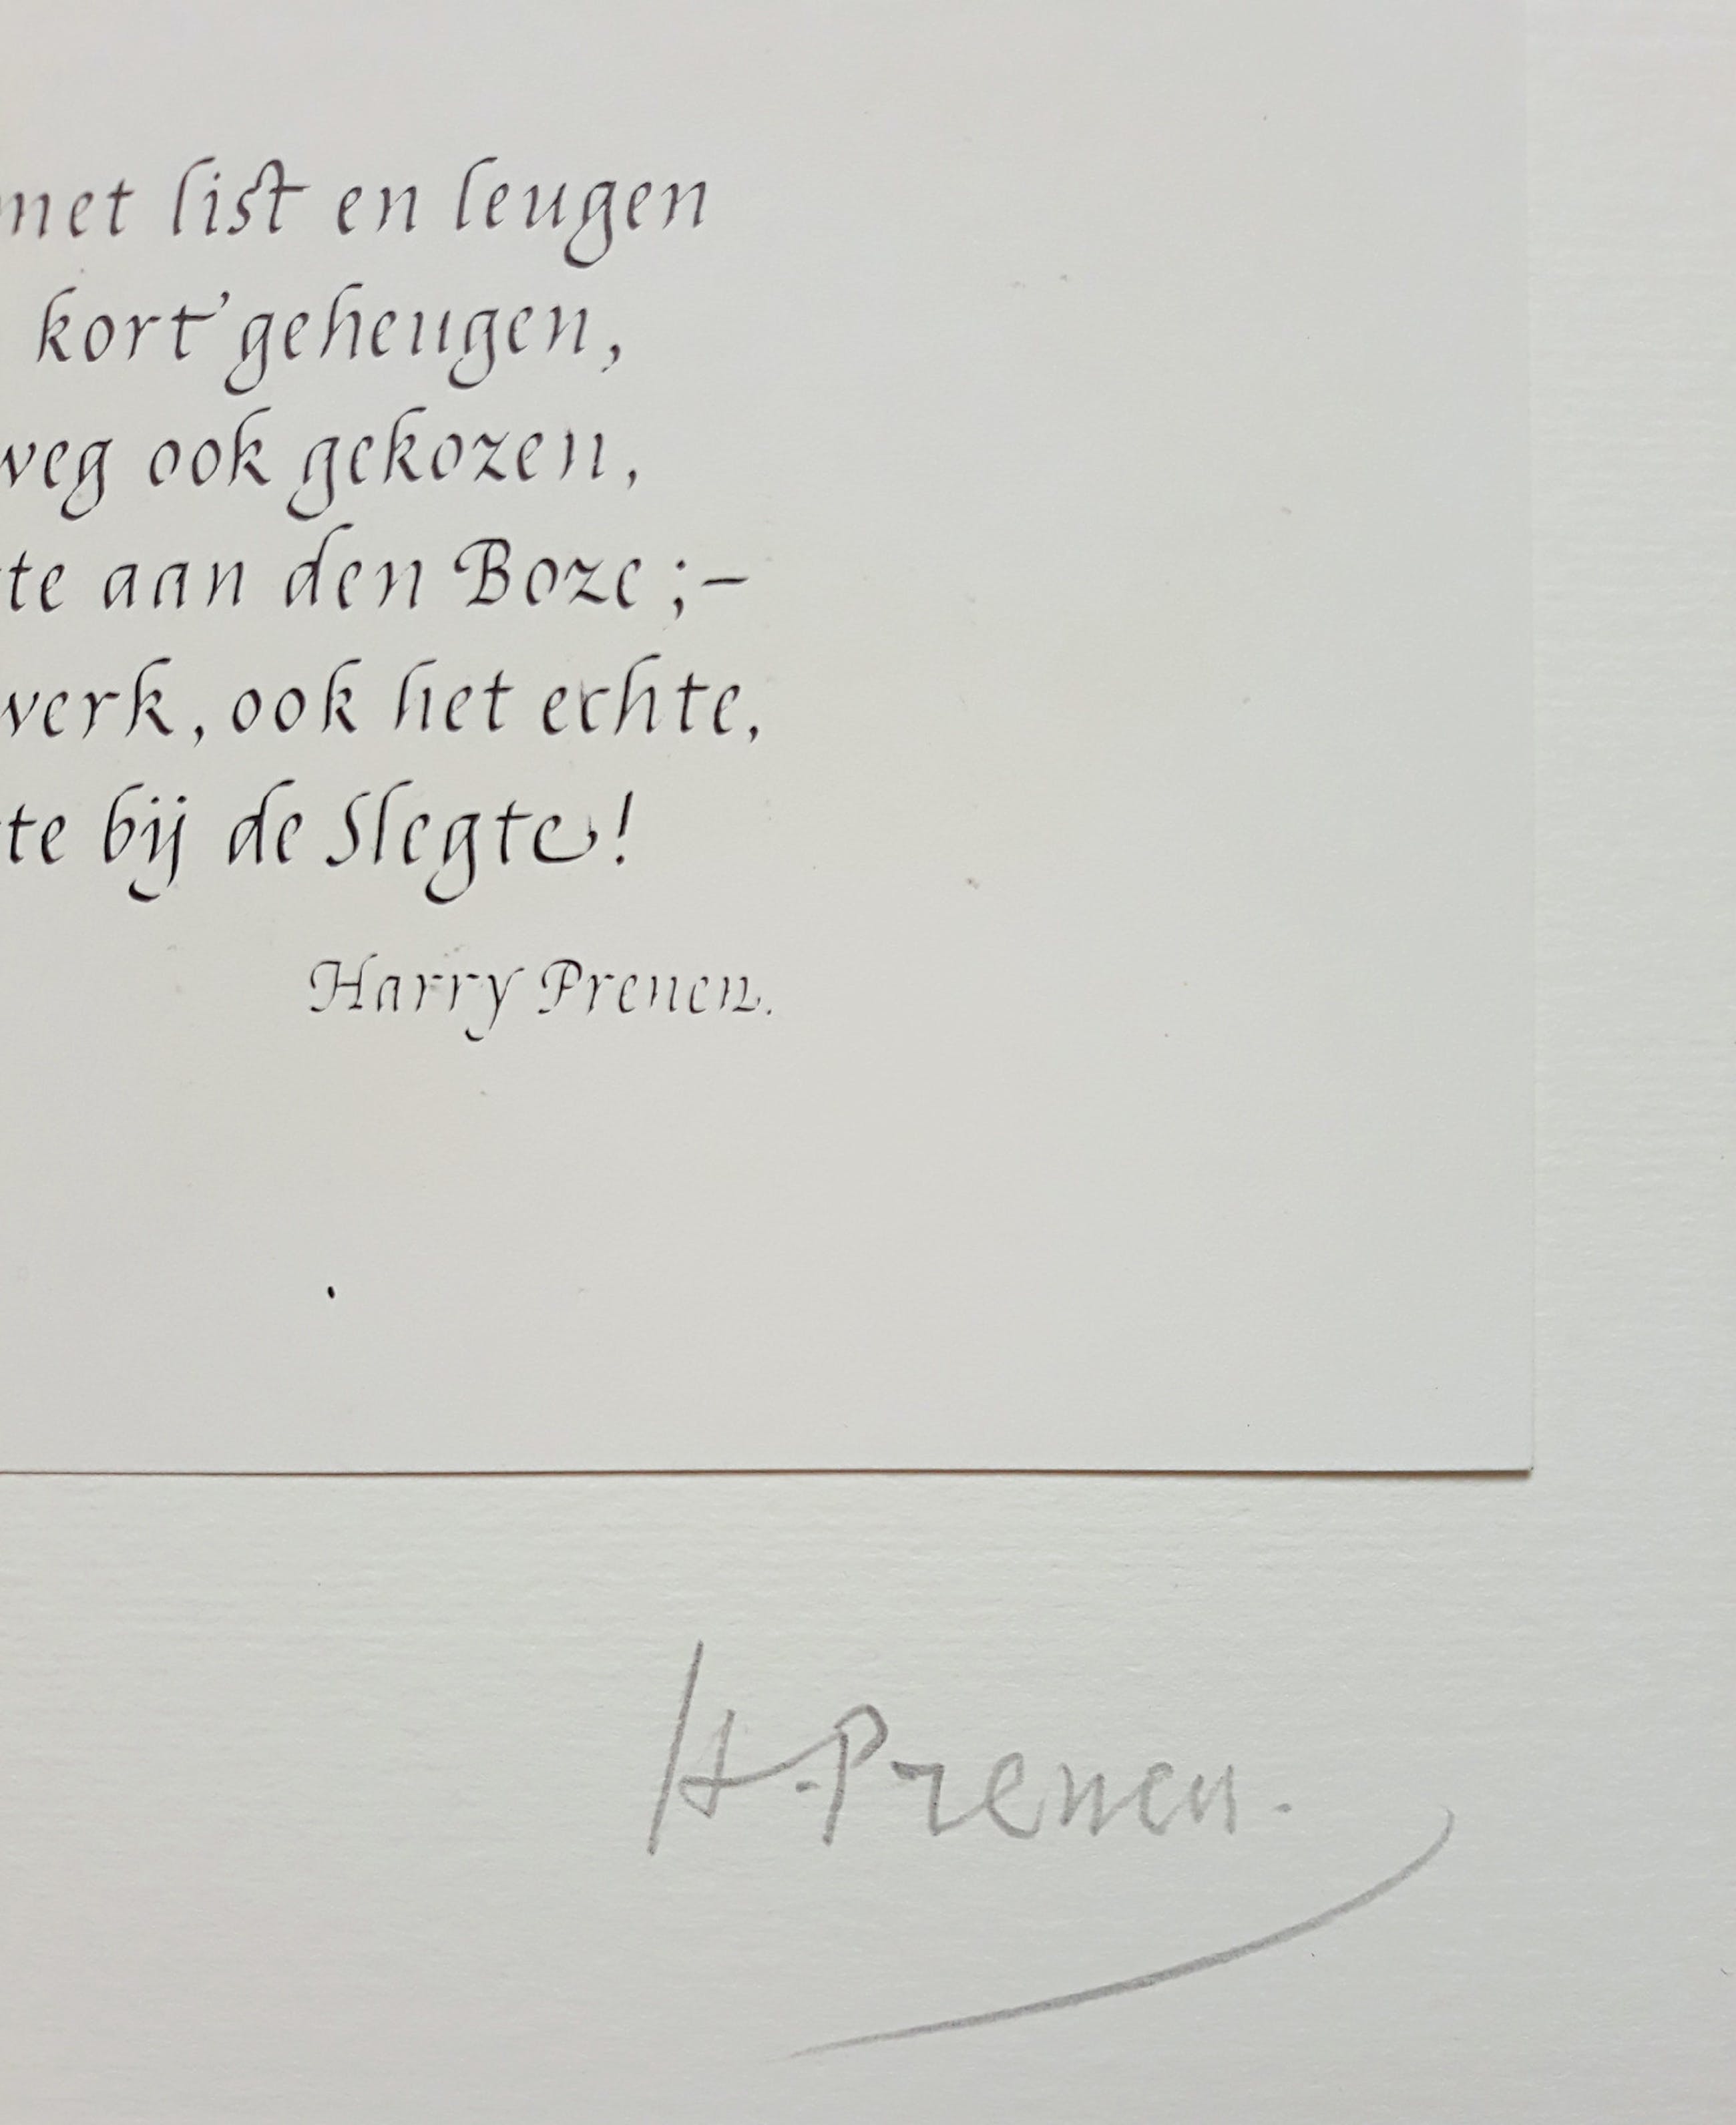 met list en leugen
kort' geheugen,
weg ook gekozen,
te aan den Boze ;-
werk, ook het echte,
te bij de Slegte!
Harry Prenen.
H. Prenen.